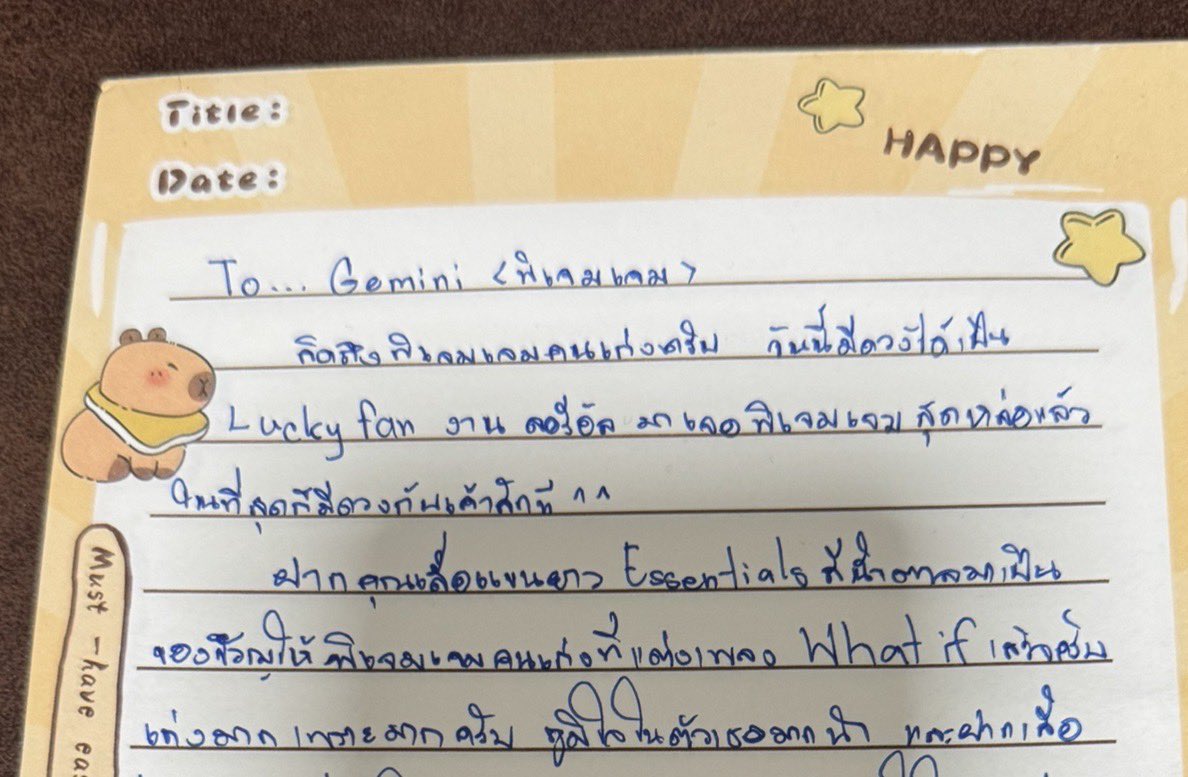 Title:
HAPPY
Date:
To... Gemini <พี่เจมเจม>
คิดถึงพี่เจมเจมคนเก่งครับ วันนี้มีดวงได้เป็น
Lucky fan งาน ลอรีอัล มาเจอพี่เจมเจมสุดหล่อแล้ว
ในที่สุดก็มีดวงกับเค้าสักที ^^
ฝากคุณเสื้อแขนยาว Essentials สีน้ำตาลมาเป็น
ของขวัญให้พี่เจมเจมคนเก่งที่แต่งเพลง What if เสร็จครับ
เก่งมาก เพราะมากครับ ภูมิใจในตัวเธอมากน้า และฝากเสื้อ
Must-have eas